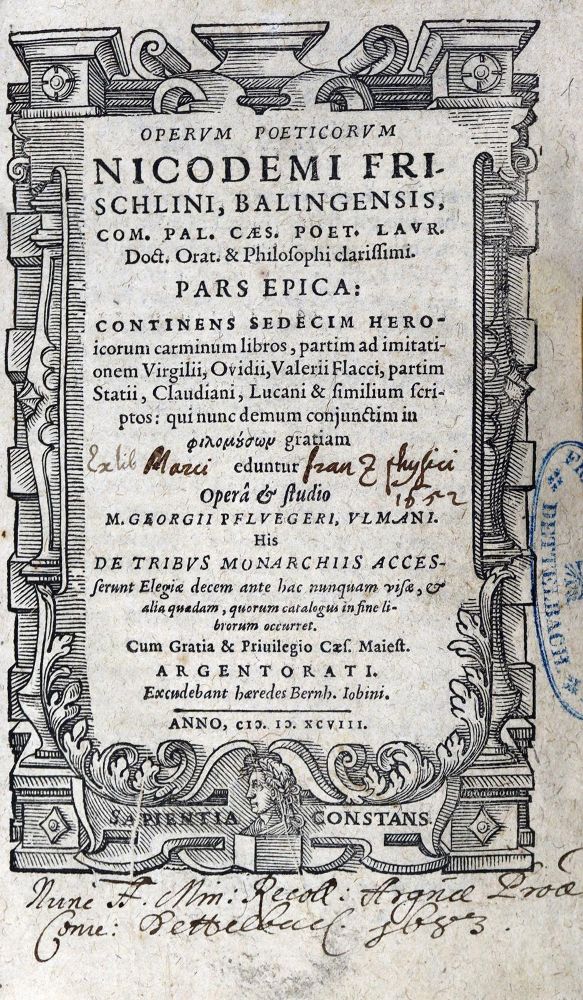 OPERVM POETICORVM
NICODEMI FRI-
SCHLINI, BALINGENSIS,
COM. PAL. CÆS. POET. LAVR.
Doct. Orat. & Philosophi clarissimi.
PARS EPICA:
CONTINENS SEDECIM HERO-
icorum carminum libros, partim ad imitati-
onem Virgilii, Ovidii, Valerii Flacci, partim
Statii, Claudiani, Lucani & similium scri-
ptos: qui nunc demum conjunctim in
φιλομȣ́σων gratiam
Ex lib Marci eduntur franz physici
Operâ & studio 1652
M. GEORGII PFLVEGERI, VLMANI.
His
DE TRIBVS MONARCHIIS ACCES-
serunt Elegiæ decem ante hac nunquam visæ, &
alia quædam, quorum catalogus in fine li-
brorum occurret.
Cum Gratia & Privilegio Cæs. Maiest.
ARGENTORATI.
Excudebant hæredes Bernh. Iobini.
ANNO, CIↃ. IↃ. XCVIII.
SAPIENTIA CONSTANS.
Nunc FF. Min: Recoll: Argnæ Proæ
Conv: Dettelbac. 1683.
DETTELBACH